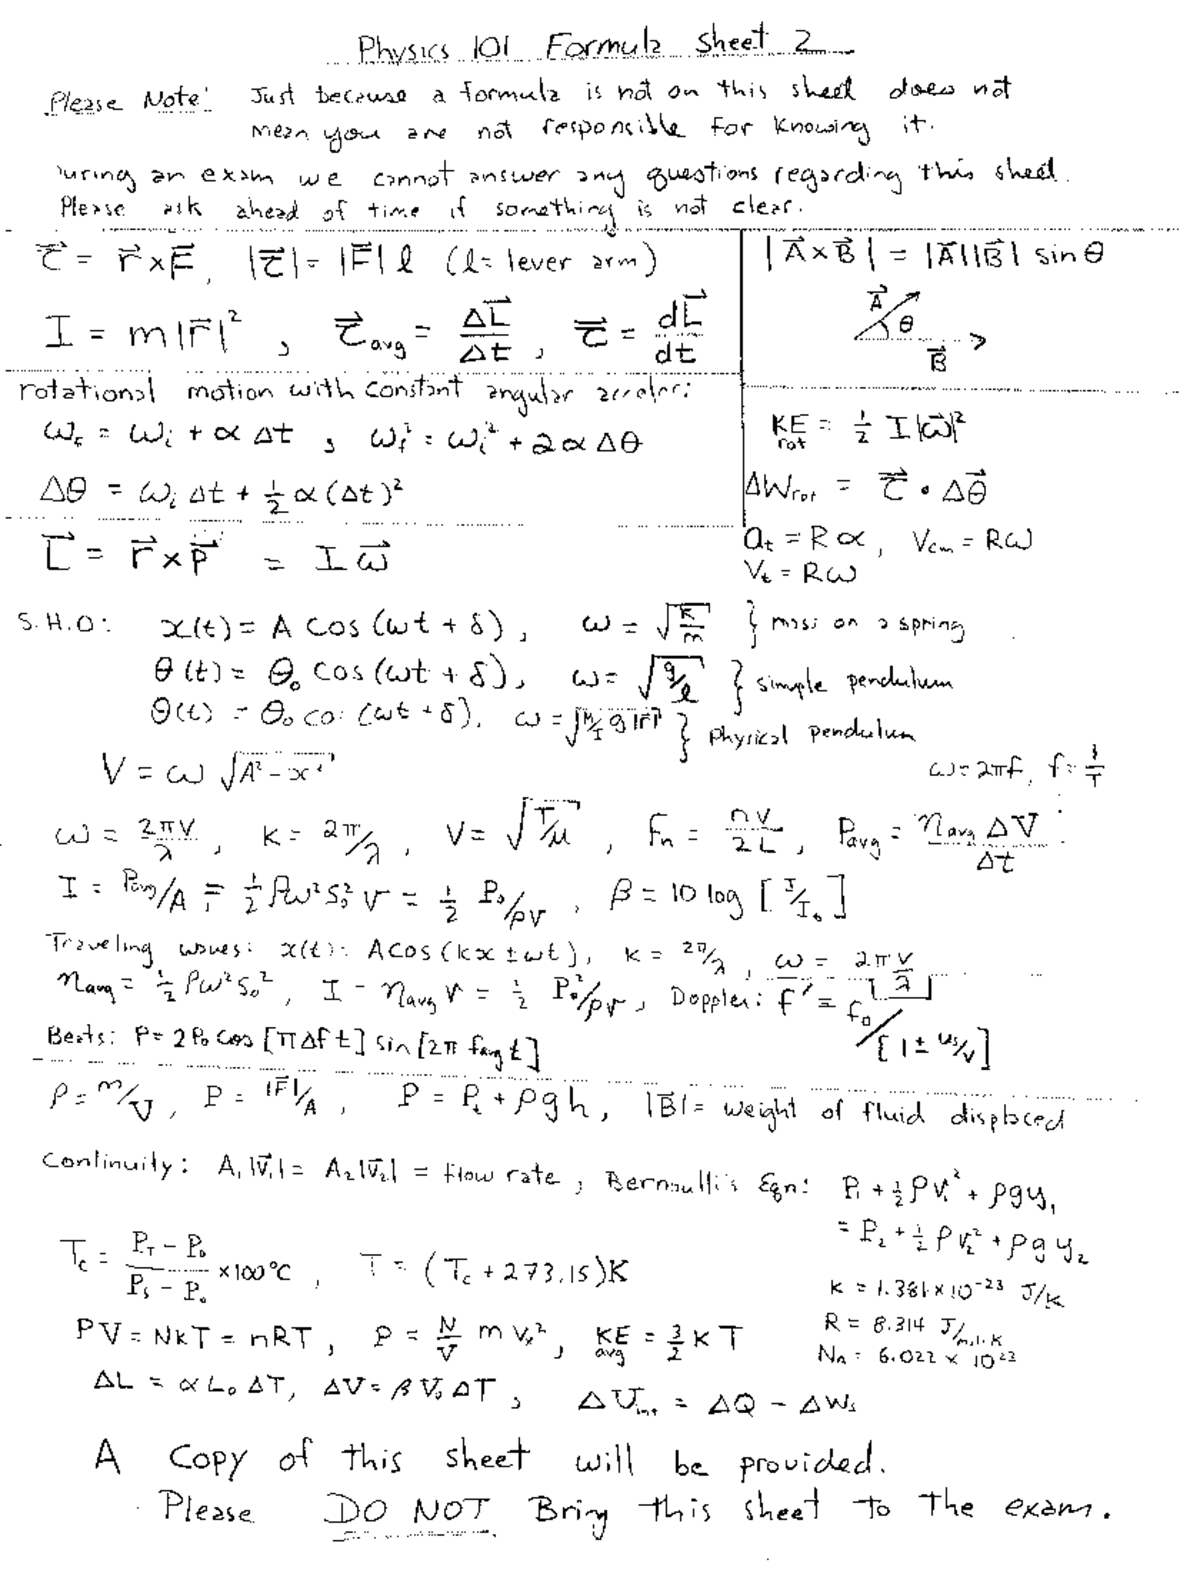 Physics 101 Formula Sheet 2
Please Note: Just because a formula is not on this sheet does not
mean you are not responsible for knowing it.
uring an exam we cannot answer any questions regarding this sheet.
Please ask ahead of time if something is not clear.
τ⃗ = r⃗ × F⃗, |τ⃗| = |F⃗| l (l = lever arm)
|A⃗ × B⃗| = |A⃗||B⃗| sin θ
A⃗ θ
B⃗
I = m|r⃗|², τ⃗avg = ΔL⃗/Δt, τ⃗ = dL⃗/dt
rotational motion with constant angular acceler:
ω_f = ω_i + α Δt, ω_f² = ω_i² + 2α Δθ
Δθ = ω_i Δt + ½ α (Δt)²
KE rot = ½ I|ω⃗|²
ΔW rot = τ⃗ · Δθ⃗
a_t = Rα, V_cm = Rω
V_t = Rω
L⃗ = r⃗ × p⃗ = I ω⃗
S.H.O: x(t) = A cos (ωt + δ), ω = √(k/m) } mass on a spring
θ(t) = θ₀ cos (ωt + δ), ω = √(g/l) } simple pendulum
θ(t) = θ₀ co: (ωt + δ), ω = √(M/I g |r⃗|) } physical pendulum
V = ω √(A² - x²)
ω = 2πf, f = 1/T
ω = 2πV/λ, K = 2π/λ, V = √(T/μ), F_n = nV/2L, P_avg = η_avg ΔV/Δt
I = P_avg/A = ½ ρω²S₀² v = ½ P₀/ρv, β = 10 log [I/I₀]
Traveling waves: x(t) = A cos (kx ± ωt), k = 2π/λ, ω = 2πV/λ
η_avg = ½ ρω²S₀², I = η_avg v = ½ P₀²/ρv, Doppler: f' = f₀/[1 ± u_s/v]
Beats: P = 2P₀ cos [πΔf t] sin [2π f_avg t]
ρ = m/V, P = |F⃗|/A, P = P_t + ρgh, |B⃗| = weight of fluid displaced
Continuity: A₁|V⃗₁| = A₂|V⃗₂| = flow rate, Bernoulli's Eqn: P₁ + ½ρV₁² + ρgy₁
= P₂ + ½ρV₂² + ρgy₂
T_c = (P_T - P₀)/(P_s - P₀) × 100°C, T = (T_c + 273.15)K
k = 1.381 × 10⁻²³ J/K
R = 8.314 J/mol·K
N_A = 6.022 × 10²³
PV = NkT = nRT, P = N/V m v_x², KE avg = 3/2 k T
ΔL = α L₀ ΔT, ΔV = β V₀ ΔT, ΔU_int = ΔQ - ΔW_s
A Copy of this sheet will be provided.
Please DO NOT Bring this sheet to the exam.